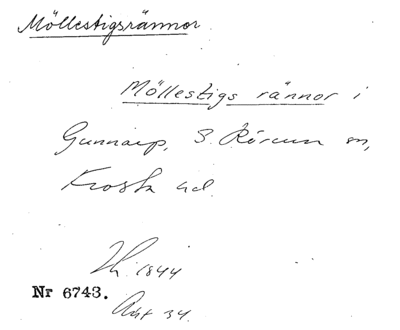 Möllestigsrännor
Möllestigs rännor i
Gunnarp, S. Rörum sn,
Frosta hd.
Lh. 1844
Nr 6743.
Akt 34